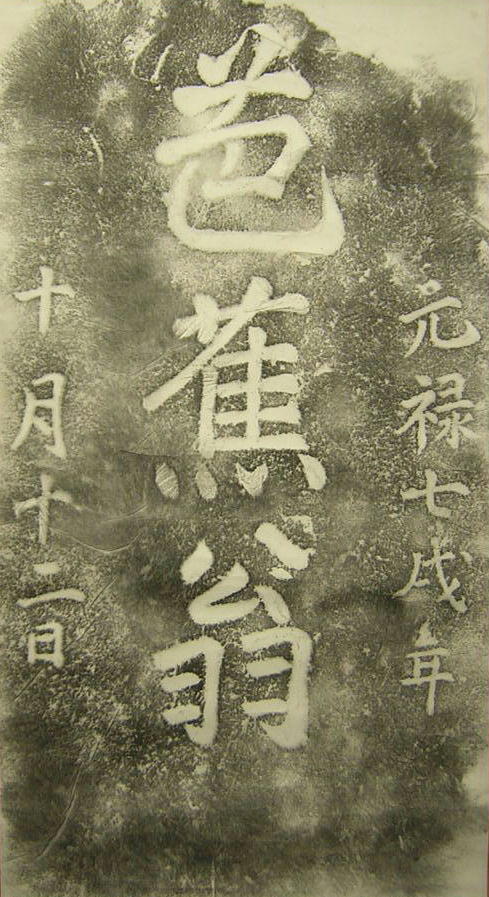 元禄七戌年
芭蕉翁
十月十二日